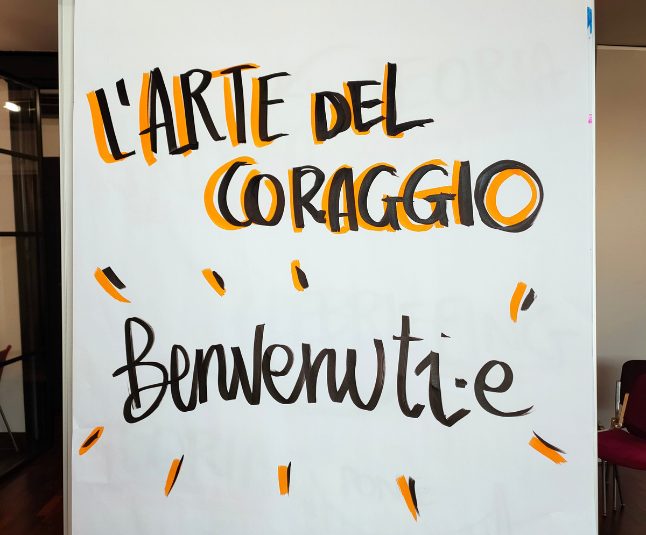 L'ARTE DEL
CORAGGIO
Benvenuti·e